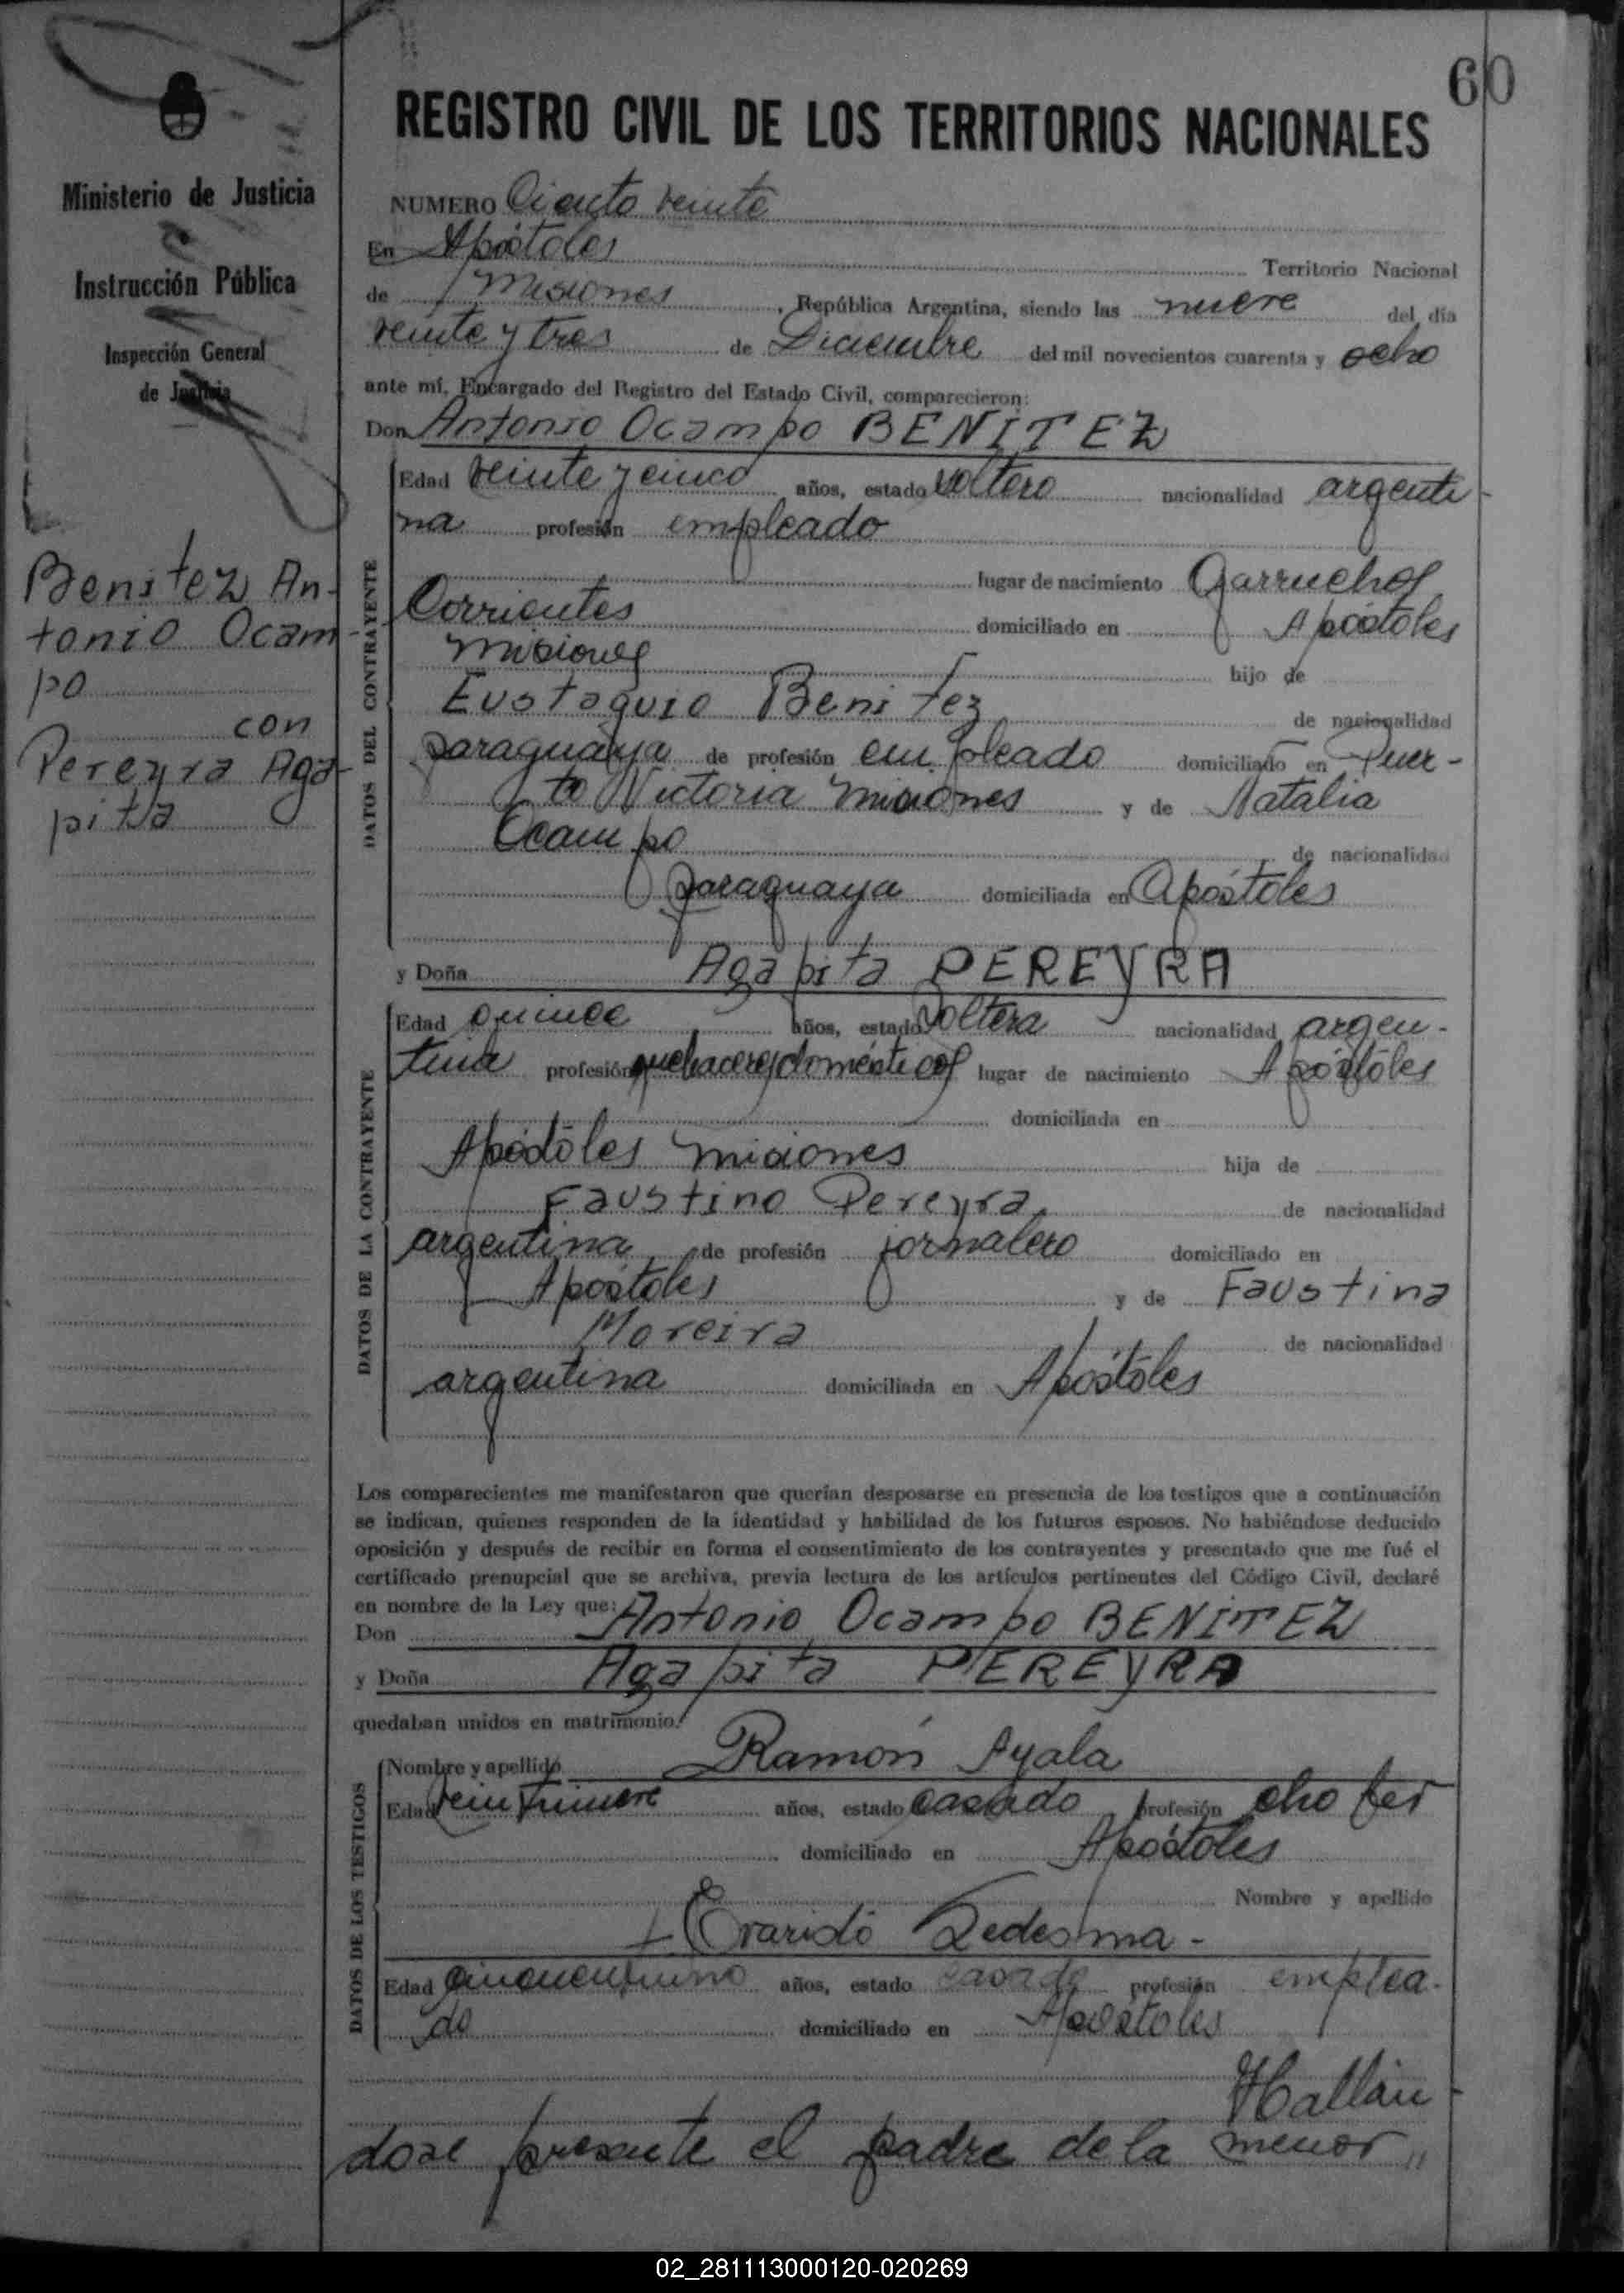 60
REGISTRO CIVIL DE LOS TERRITORIOS NACIONALES
Ministerio de Justicia
Instrucción Pública
Inspección General
de Justicia
Benitez An-
tonio Ocam-
po
con
Pereyra Aga-
pita
NUMERO Ciento veinte
En Apóstoles Territorio Nacional
de Misiones, República Argentina, siendo las nueve del día
veinte y tres de Diciembre del mil novecientos cuarenta y ocho
ante mí, Encargado del Registro del Estado Civil, comparecieron:
Don Antonio Ocampo BENITEZ
DATOS DEL CONTRAYENTE
Edad veinte y cinco años, estado soltero nacionalidad argenti-
na profesión empleado
lugar de nacimiento Garruchos
Corrientes domiciliado en Apóstoles
Misiones hijo de
Eustaquio Benitez de nacionalidad
paraguaya de profesión empleado domiciliado en Puer-
to Victoria Misiones y de Natalia
Ocampo de nacionalidad
paraguaya domiciliada en Apóstoles
y Doña Agapita PEREYRA
DATOS DE LA CONTRAYENTE
Edad quince años, estado soltera nacionalidad argen-
tina profesión quehaceres domésticos lugar de nacimiento Apóstoles
domiciliada en
Apóstoles Misiones hija de
Faustino Pereyra de nacionalidad
argentina de profesión jornalero domiciliado en
Apóstoles y de Faustina
Moreira de nacionalidad
argentina domiciliada en Apóstoles
Los comparecientes me manifestaron que querían desposarse en presencia de los testigos que a continuación
se indican, quienes responden de la identidad y habilidad de los futuros esposos. No habiéndose deducido
oposición y después de recibir en forma el consentimiento de los contrayentes y presentado que me fué el
certificado prenupcial que se archiva, previa lectura de los artículos pertinentes del Código Civil, declaré
en nombre de la Ley que:
Don Antonio Ocampo BENITEZ
y Doña Agapita PEREYRA
quedaban unidos en matrimonio.
DATOS DE LOS TESTIGOS
Nombre y apellido Ramón Ayala
Edad veintinueve años, estado casado profesión chofer
domiciliado en Apóstoles
Nombre y apellido
Evaristo Ledesma -
Edad cincuentiuno años, estado casado profesión emplea-
do domiciliado en Apóstoles
Hallán-
dose presente el padre de la menor "
02_281113000120-020269